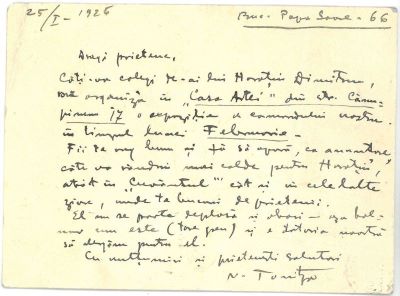 25/I - 1926 Buc. Popa Soare - 66
Dragă prietene,
Câți-va colegi de-ai lui Horațiu Dimitriu,
organiză în "Casa Artei" din str. Câm-
pineanu 17 o expoziție a camaradului nostru
în timpul lunei Februarie -
Fii te rog bun și să apară, ca anunțare
câte-va rânduri mai calde pentru Horațiu,
atât în "Cuvântul" cât și în celelalte
ziare, unde te bucuri de prietenii.
El nu se poate deplasa și obosi - așa bol-
nav cum este (tare greu) și e datoria noastră
să alergăm pentru el.
Cu mulțumiri și prietenești salutări
N. Tonitza